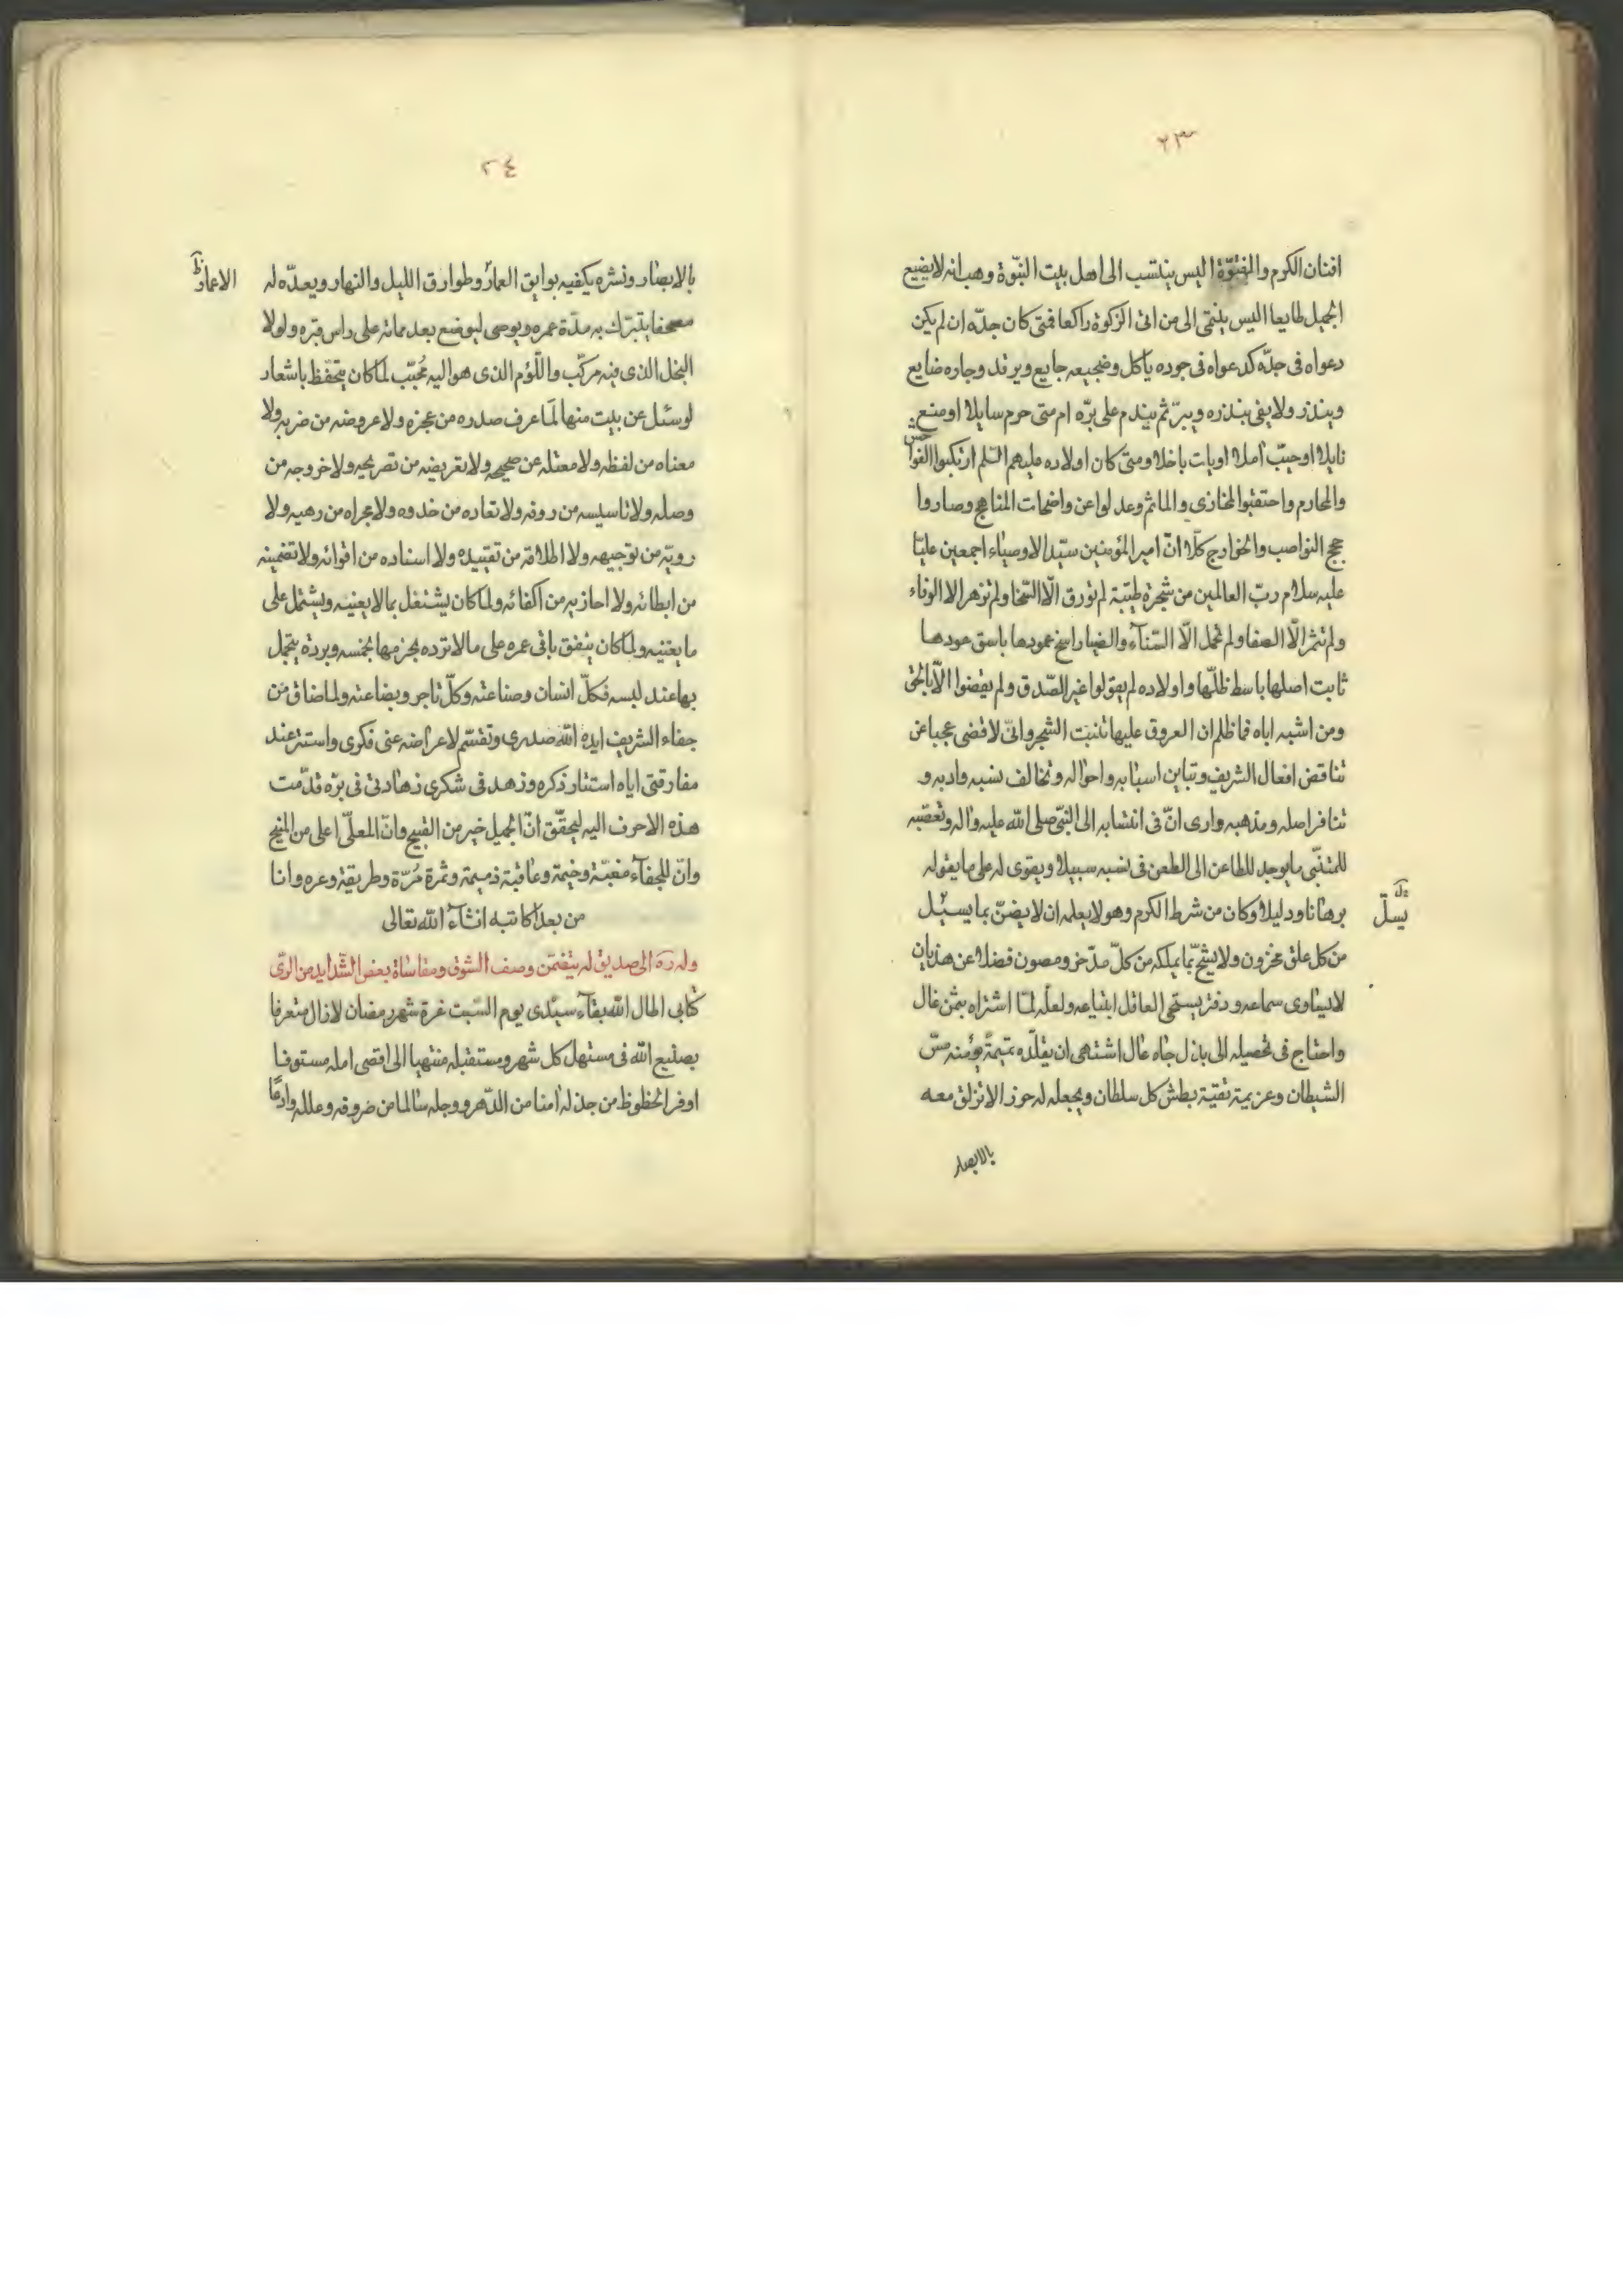 ٢٣
افنان الكرم والفتوّة اليس ينتسب الى اهل بيت النبوّة وهب انه لا يضيع
الجميل طايعا اليس ينتمى الى من اتى الزكوة راكعا فمتى كان جدّه ان لم يكن
دعواه فى جدّه كدعواه فى جوده ياكل وضجيعه جايع ويرقد وجاره ضايع
وينذر ولا يفى بنذره ويبرّ ثم يندم على برّه ام متى حرم سايلا او منع
نايلا او خيّب آملا او بات باخلا ومتى كان اولاده عليهم السّلم ارتكبوا الفواحش
والمحارم واحتقبوا المخازى والماثم وعدلوا عن واضحات المناهج وصاروا
حجج النواصب والخوارج كلّا انّ امير المؤمنين سيّد الاوصياء اجمعين عليّا
عليه سلام ربّ العالمين من شجرة طيّبة لم تورق الّا السّخا ولم تزهر الا الوفاء
ولم تثمر الّا الصفا ولم تحمل الّا السّناء والضيا راسخ عمودها باسق عودها
ثابت اصلها باسط ظلّها واولاده لم يقولوا غير الصّدق ولم يقضوا الّا بالحق
ومن اشبه اباه فما ظلم ان العروق عليها تنبت الشجر وانّى لاقضى عجبا عن
تناقض افعال الشريف وتباين اسبابه واحواله وتخالف نسبه وادبه و
تنافر اصله ومذهبه وارى انّ فى انتسابه الى النبّى صلى الله عليه واله وتعصّبه
للمتنّبى ما يوجد للطاعن الى الطعن فى نسبه سبيلا ويقوى له على ما يقوله
برهانا ودليلا وكان من شرط الكرم وهو لا يعلمه ان لا يضنّ بما يسئل
يسلّ
من كل علق مخزون ولا يشحّ بما يملكه من كلّ مدّخر ومصون فضلا عن هذيان
لا يساوى سماعه ودفتر يستحى العاقل ابتياعه ولعلّه لمّا اشتراه بثمن غال
واحتاج فى تحصيله الى باذل جاه عال اشتهى ان يقلّده تميمة تؤمنه مسّ
الشيطان وعزيمة تقيّه بطش كل سلطان ويجعله له حرزا لا تزلق معه
بالابصار
٢٤
بالابصار ونشره يكفيه بوايق العمار وطوارق الليل والنهار ويعدّه له
الاعمار
مصحفا يتبرّك به مدّة عمره ويوصى ليوضع بعد مماته على راس قبره ولولا
البخل الذى فيه مركّب واللّؤم الذى هو اليه مُحبّب لما كان يتحفّظ باشعار
لو سئل عن بيت منها لما عرف صدره من عجزه ولا عروضه من ضربه ولا
معناه من لفظه ولا معتله عن صحيحه ولا تعريضه من تصريحه ولا خروجه من
وصله ولا تاسيسه من ردفه ولا نفاده من حذوه ولا مجراه من رهيه ولا
رويّه من توجيهه ولا اطلاقه من تقييده ولا اسناده من اقوائه ولا تضمينه
من ابطائه ولا احازيه من اكفائه ولما كان يشتغل بما لا يعنيه ويشتمل على
ما يعنيه ولما كان ينفق باقى عمره على ما لا ترده بجزمها بخمسه وبردة يتجمل
بها عند لبسه فكلّ انسان وصناعته وكلّ تاجر وبضاعته ولما ضاق من
جفاء الشريف ايده الله صدرى وتقسّم لاعراضه عنى فكرى واستتر عند
مفارقتى اياه استتار ذكره وزهد فى شكرى زهادتى فى برّه قدّمت
هذه الاحرف اليه ليحقّق انّ الجميل خير من القبيح وانّ المعلّى اعلى من المنيح
وانّ للجفآء مغبّة وخيمة وعاقبة ذميمة وثمرة مُرّة وطريقة وعره وانا
من بعدُ كاتبه انشآء الله تعالى
وله ره الى صديق له يتضمّن وصف الشوق ومقاساة بعض الشّدايد من الورى
كتابى اطال الله بقآء سيّدى يوم السّبت غرة شهر رمضان لا زال متعرفا
بصنيع الله فى مستهل كل شهر ومستقبله منتهيا الى اقصى امله مستوفا
اوفر الحظوظ من جذله آمنا من الدّهر ووجله سالما من ضروفه وعلله وادعًا